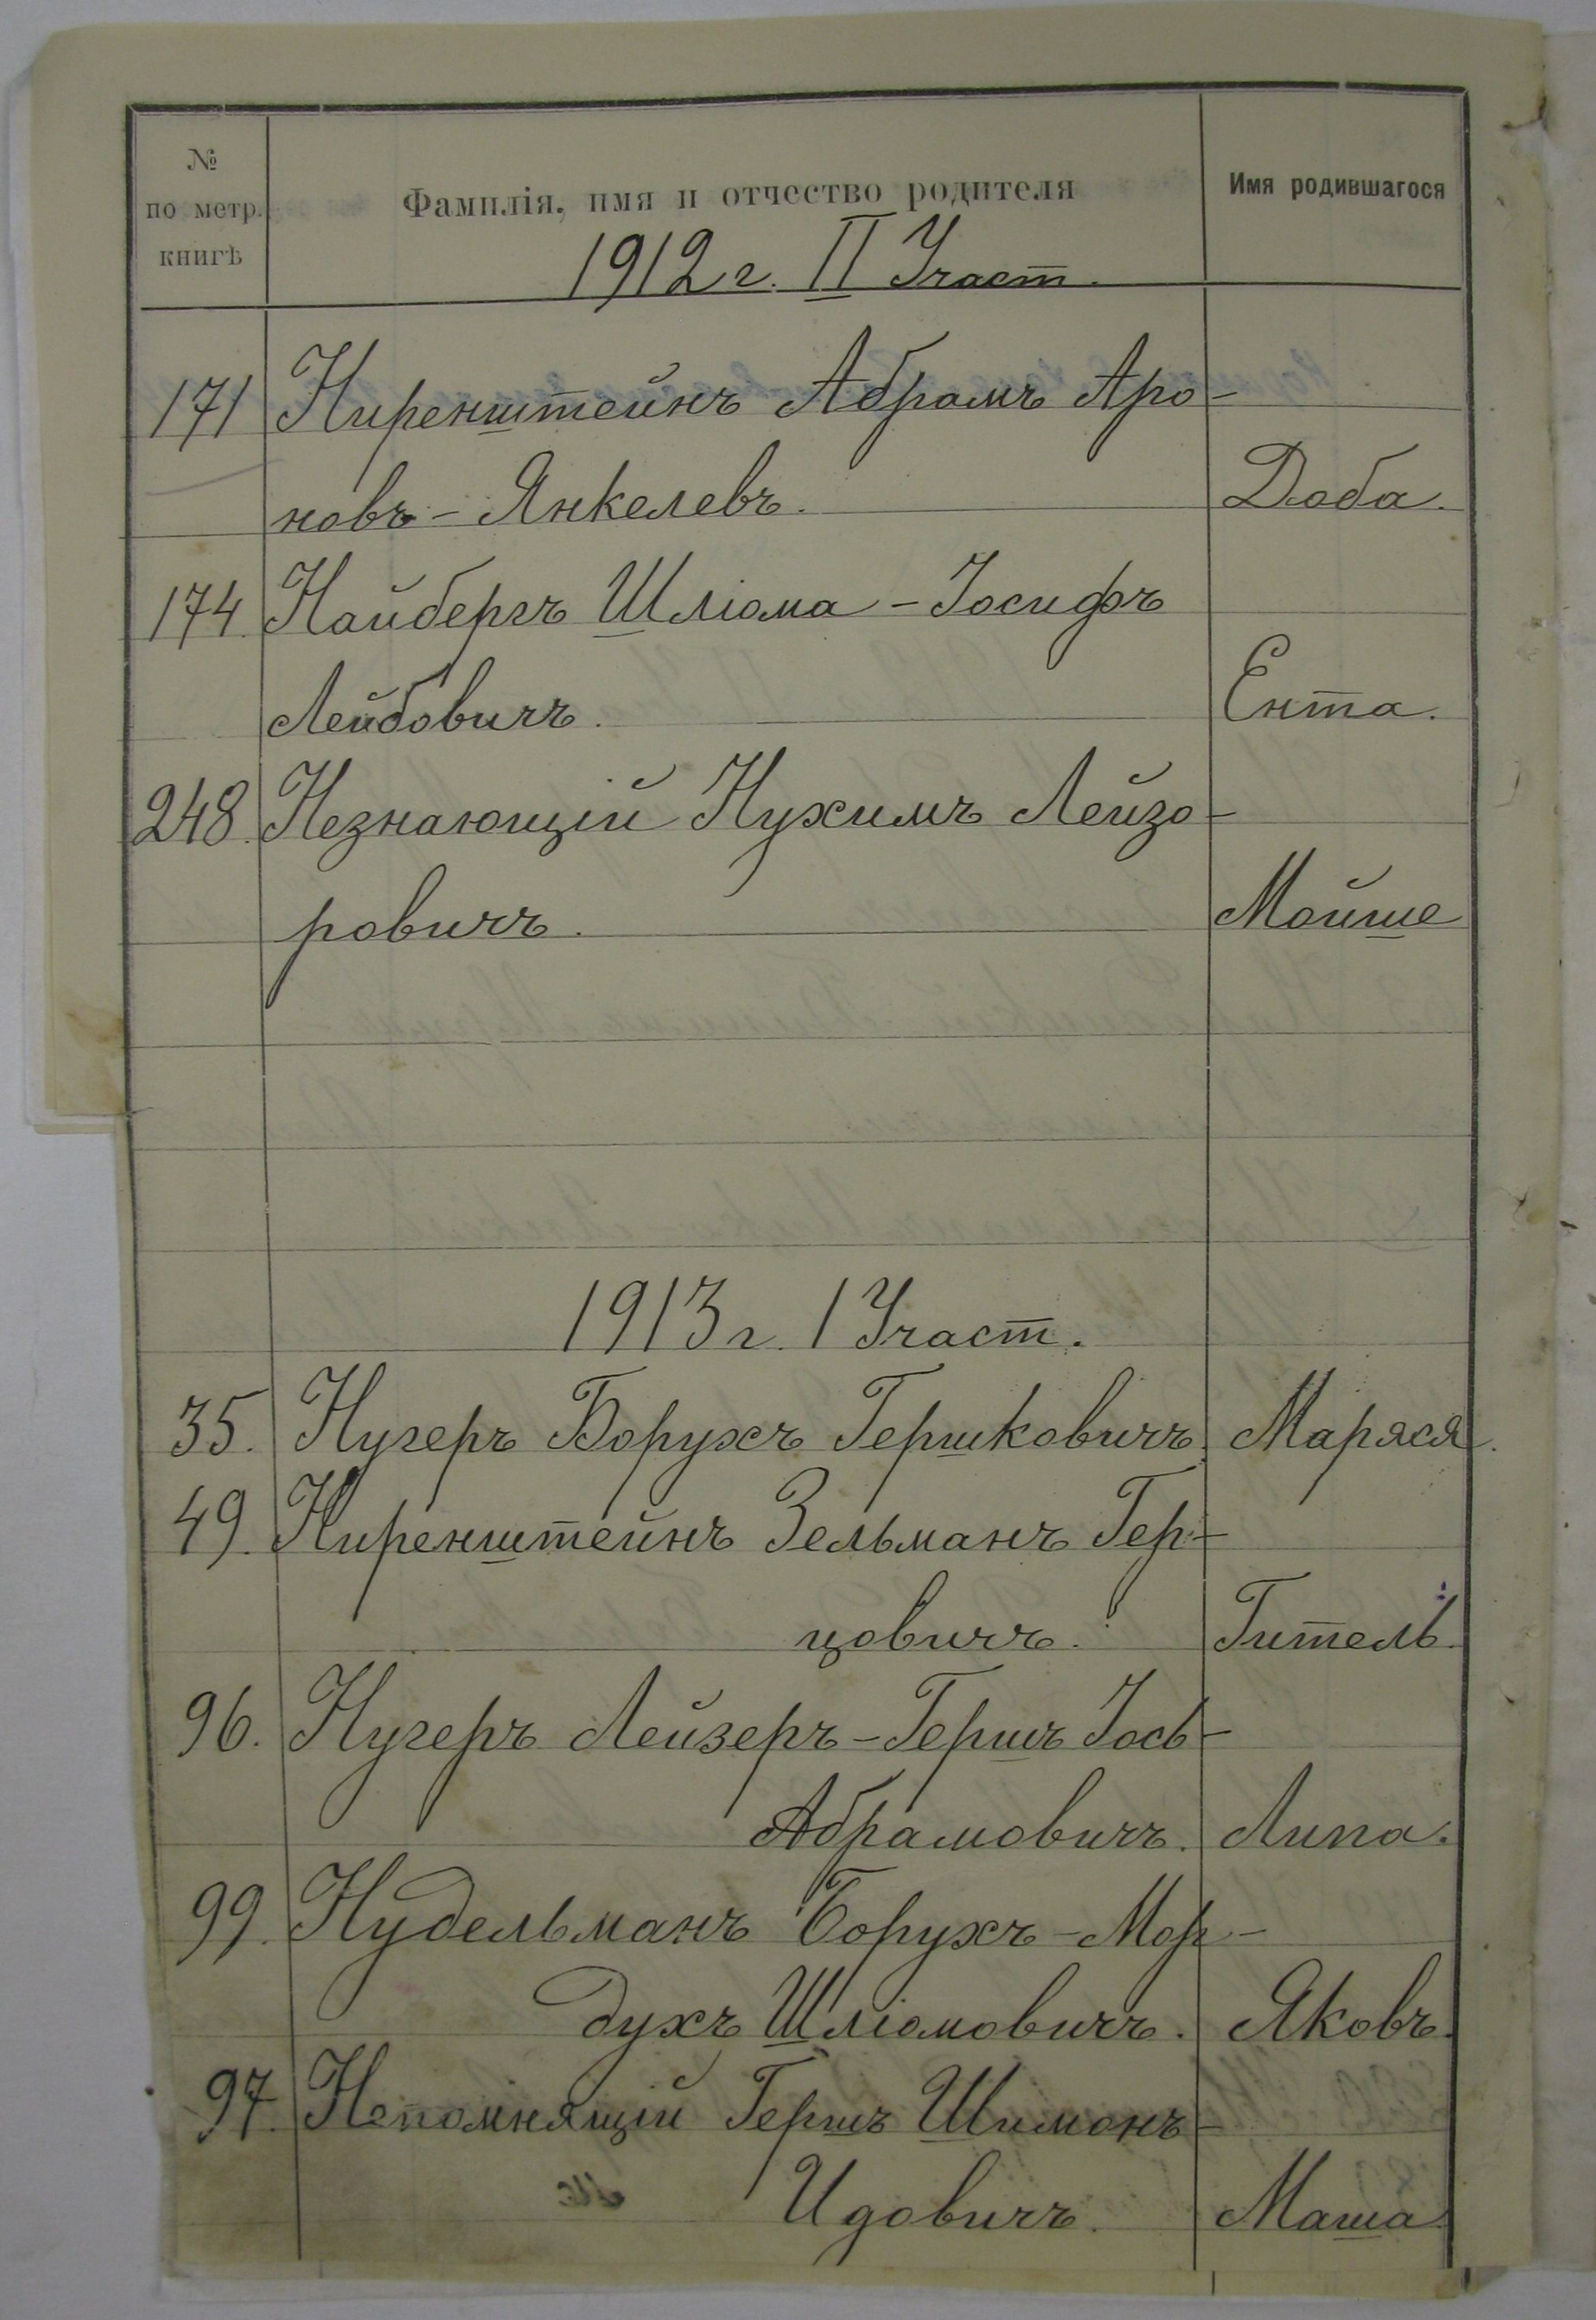 №
по метр.
книгѣ
Фамилія, имя и отчество родителя
Имя родившагося
1912 г. II Участ.
171 Ниренштейнъ Абрамъ Аро-
новъ - Янкелевъ. Доба.
174. Найбергъ Шліома - Іосифъ
Лейбовичъ. Ента.
248. Незнающій Нухимъ Лейзо-
ровичъ. Мойше
1913 г. I Участ.
35. Нугеръ Борухъ Гершковичъ. Маряся.
49. Ниренштейнъ Зельманъ Гер-
цовичъ. Гитель.
96. Нугеръ Лейзеръ - Гершъ Іось-
Абрамовичъ. Липа.
99. Нудельманъ Борухъ - Мор-
духъ Шліомовичъ. Яковъ.
97. Непомнящій Гершъ Шимонъ-
Идовичъ. Маша.